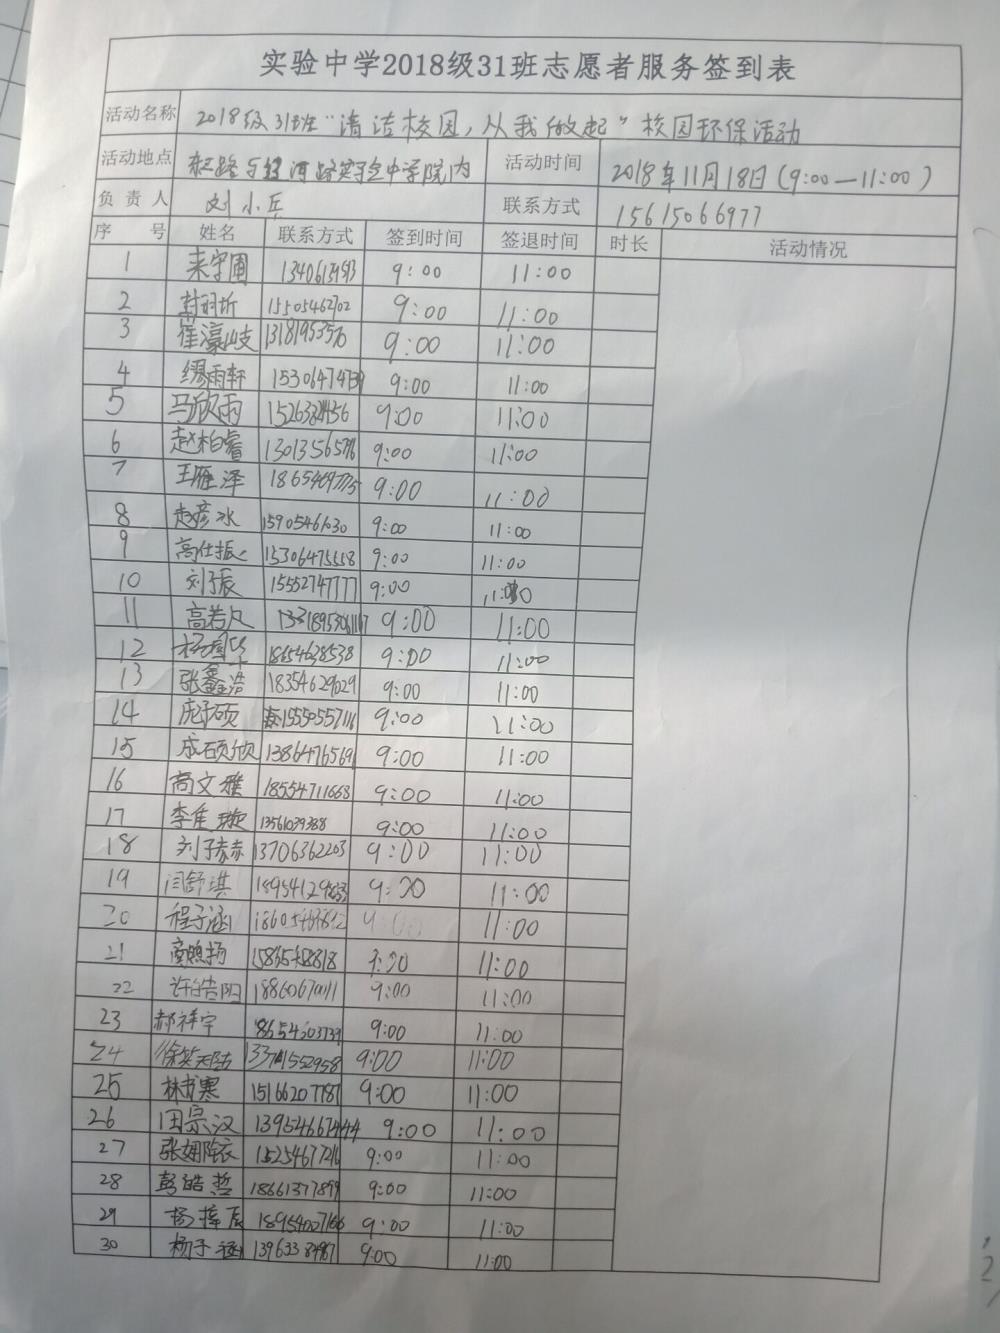 实验中学2018级31班志愿者服务签到表
活动名称 2018级31班"清洁校园,从我做起"校园环保活动
活动地点 路与 河路实验中学院内 活动时间 2018年11月18日(9:00—11:00)
负责人 刘小兵 联系方式 15615066977
序号 姓名 联系方式 签到时间 签退时间 时长 活动情况
1 来宇 9:00 11:00
2 15505462702 9:00 11:00
3 崔濠 13181953576 9:00 11:00
4 缪雨轩 15306474739 9:00 11:00
5 马欣雨 9:00 11:00
6 赵柏睿 9:00 11:00
7 王雁泽 9:00 11:00
8 赵彦冰 9:00 11:00
9 高仕振 15306475558 9:00 11:00
10 刘子振 15552747777 9:00
11 高若凡 9:00 11:00
12 杨 18654638538 9:00 11:00
13 张鑫浩 18354629029 9:00 11:00
14 庞子硕 9:00 11:00
15 成硕欣 9:00 11:00
16 高文雅 18554711668 9:00 11:00
17 李隹璇 13561039388 9:00 11:00
18 刘子赫 13706362203 9:00 11:00
19 闫舒琪 9:00 11:00
20 程子涵 9:00 11:00
21 9:00 11:00
22 许皓阳 9:00 11:00
23 郝祥宇 9:00 11:00
24 徐笑天 9:00 11:00
25 林 寒 15166207787 9:00 11:00
26 田宗汉 9:00 11:00
27 张 9:00 11:00
28 彭皓哲 18661377899 9:00 11:00
29 杨梓辰 18954007166 9:00 11:00
30 杨子涵 9:00 11:00